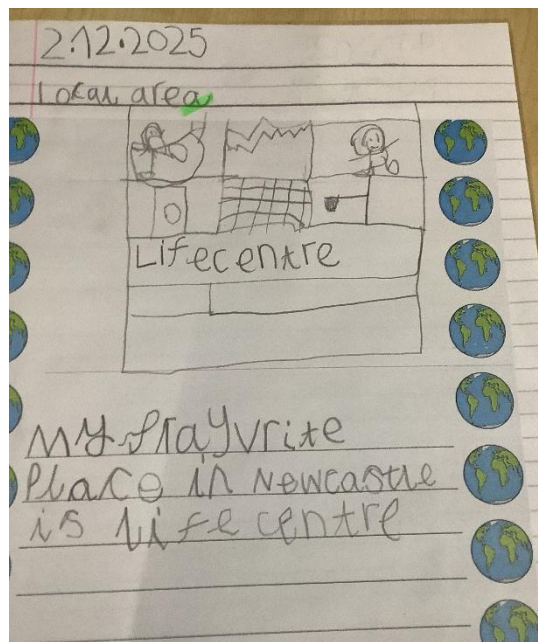 2.12.2025
Local area
Lifecentre
My frayvrite
Place in Newcastle
is Life centre